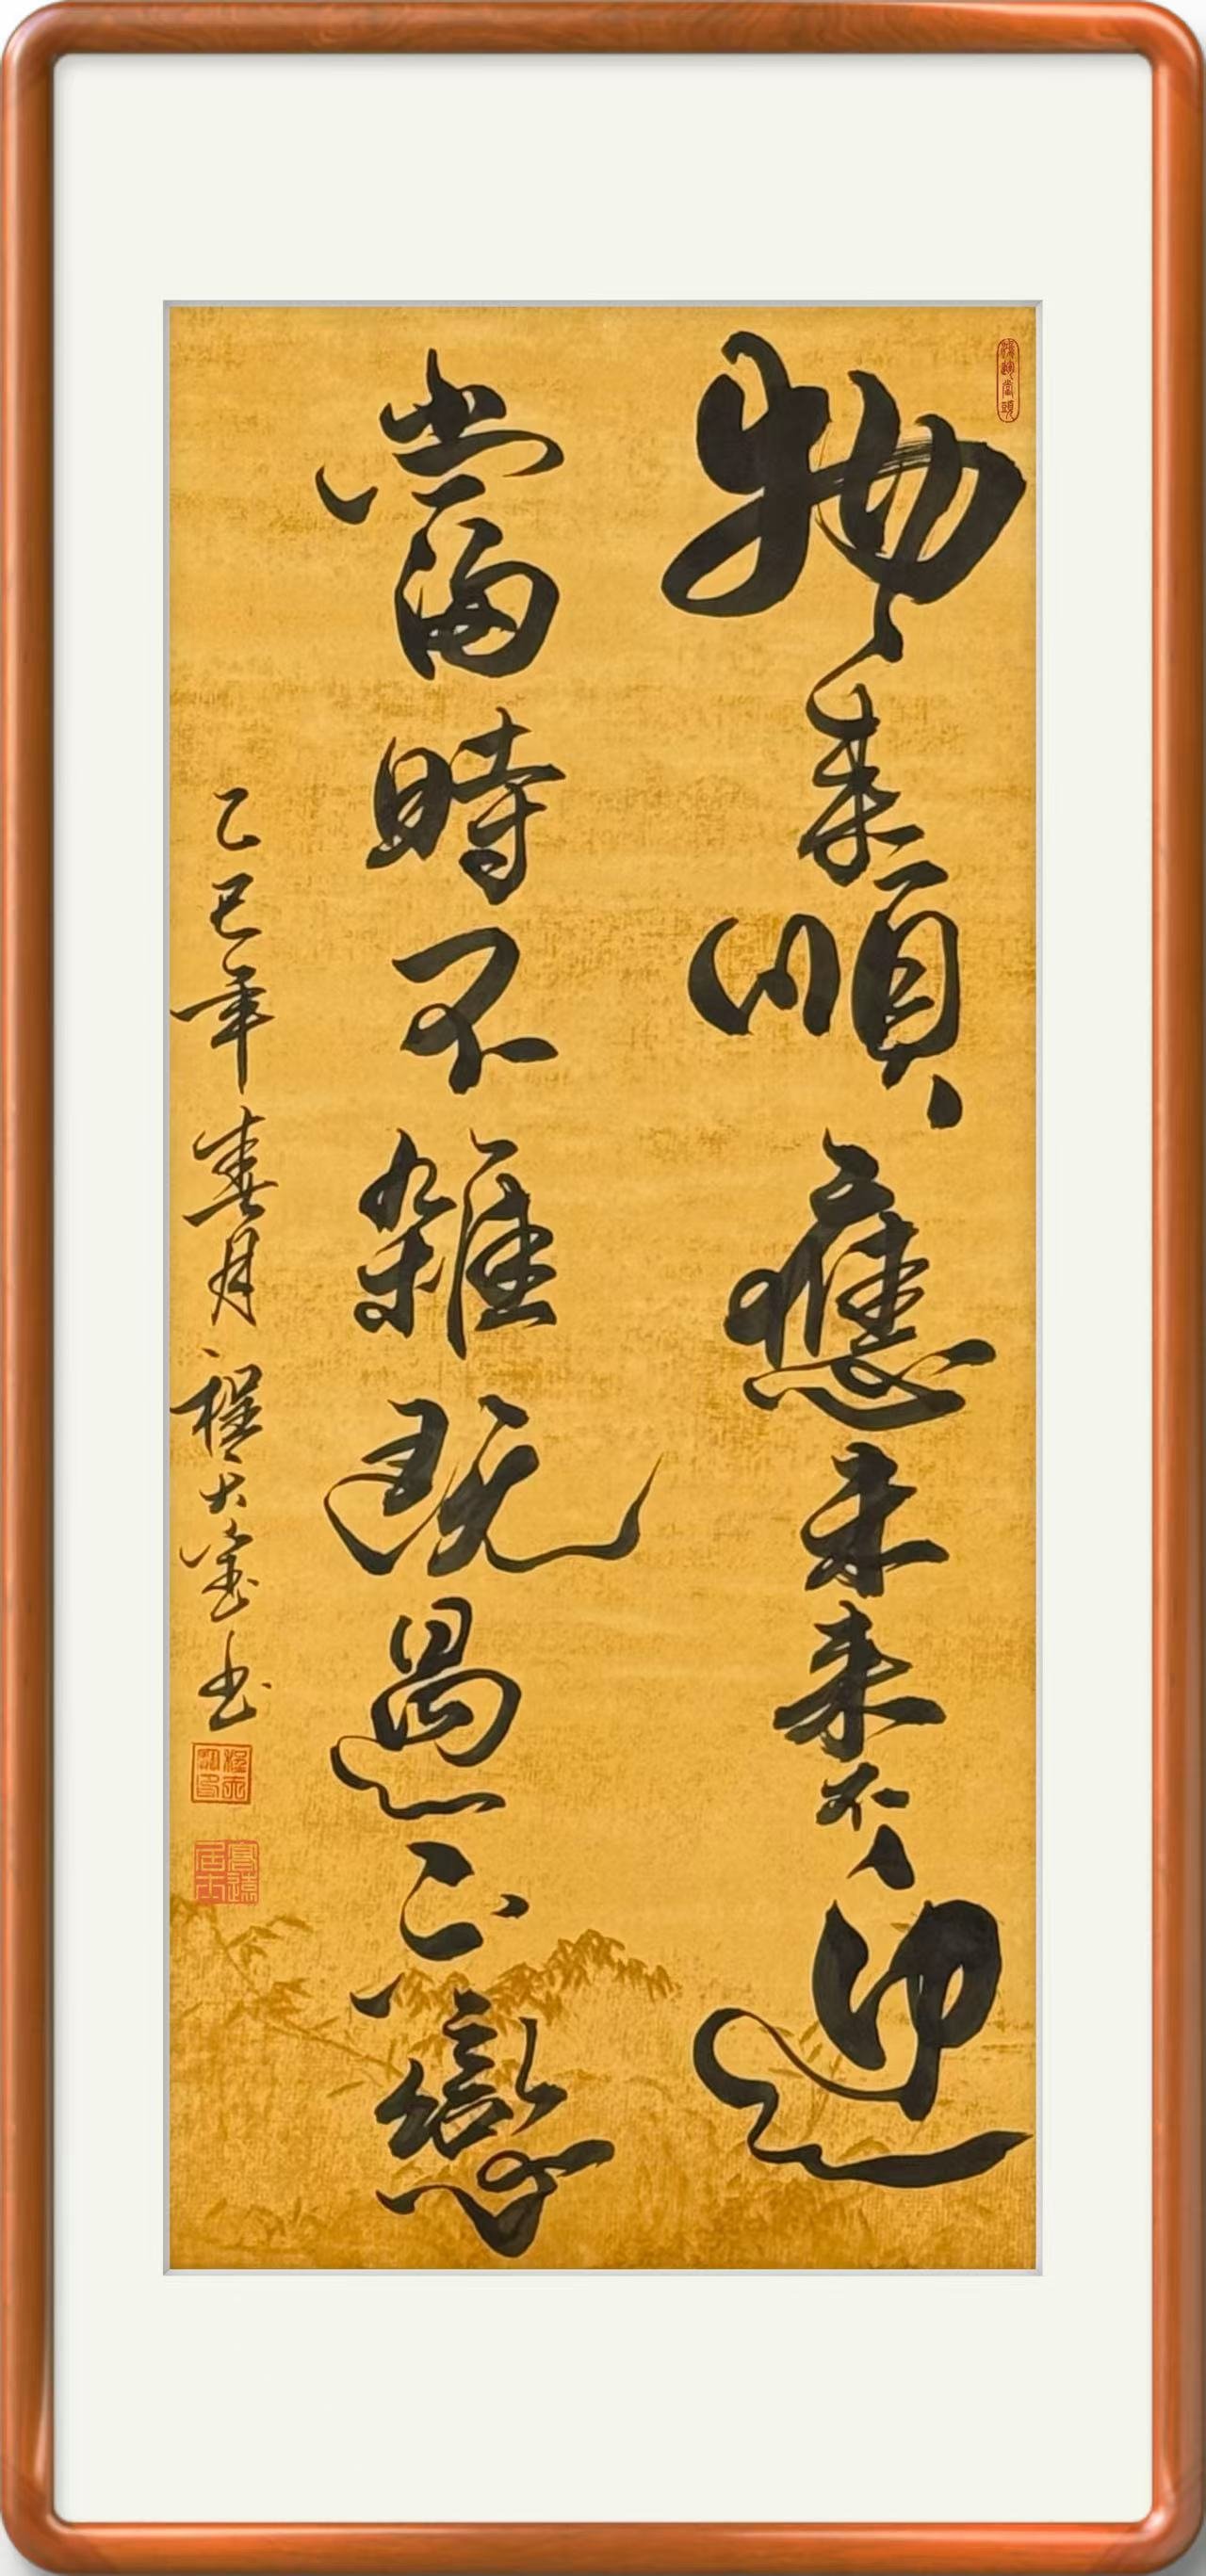 物来順應未来不迎
當時不雜既過不戀
乙巳年春月程大書